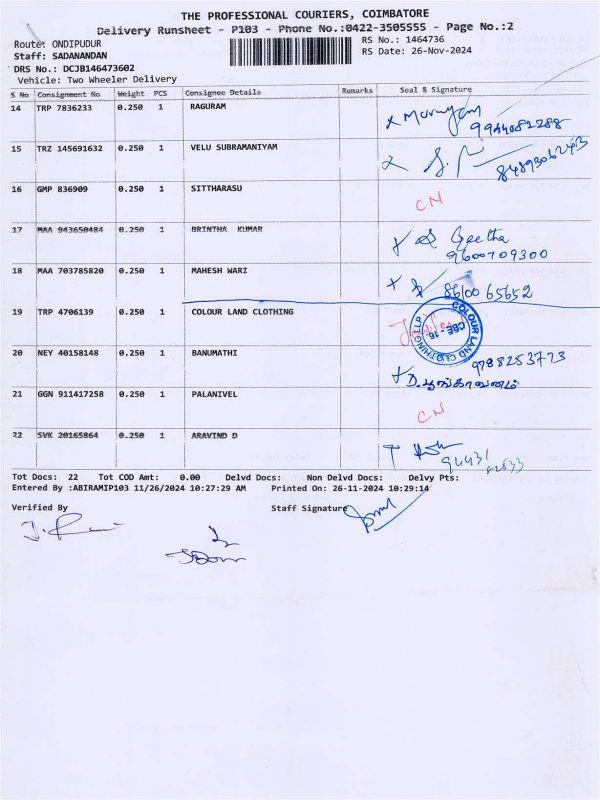 THE PROFESSIONAL COURIERS, COIMBATORE
Delivery Runsheet - P103 - Phone No.:0422-3505555 - Page No.:2
Route: ONDIPUDUR RS No.: 1464736
Staff: SADANANDAN RS Date: 26-Nov-2024
DRS No.: DCJB146473602
Vehicle: Two Wheeler Delivery
S No Consignment No Weight PCS Consignee Details Remarks Seal & Signature
14 TRP 7836233 0.250 1 RAGURAM
9944082288
15 TRZ 145691632 0.250 1 VELU SUBRAMANIYAM
8489306243
16 GMP 836909 0.250 1 SITTHARASU
CN
17 MAA 943650484 0.250 1 BRINTHA KUMAR
Geetha
9600709300
18 MAA 703785820 0.250 1 MAHESH WARI
86100 65652
19 TRP 4706139 0.250 1 COLOUR LAND CLOTHING
COLOUR LAND CLOTHING LLP
CBE - 16
20 NEY 40158148 0.250 1 BANUMATHI
9788253773
D. பூங்காவனம்
21 GGN 911417258 0.250 1 PALANIVEL
CN
22 SVK 20165864 0.250 1 ARAVIND D
94431
Tot Docs: 22 Tot COD Amt: 0.00 Delvd Docs: Non Delvd Docs: Delvy Pts:
Entered By :ABIRAMIP103 11/26/2024 10:27:29 AM Printed On: 26-11-2024 10:29:14
Verified By Staff Signature